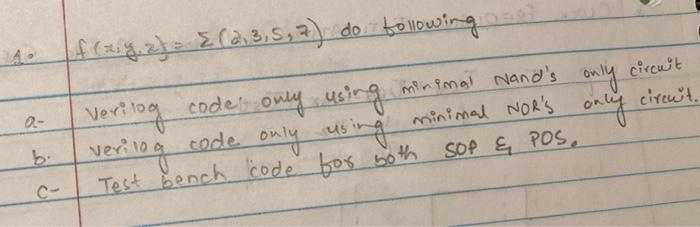 1. f(x,y,z) = Σ(2,3,5,7) do following
a- Verilog code only using minimal Nand's only circuit
b. verilog code only using minimal NOR's only circuit.
c- Test bench code for both SOP & POS.